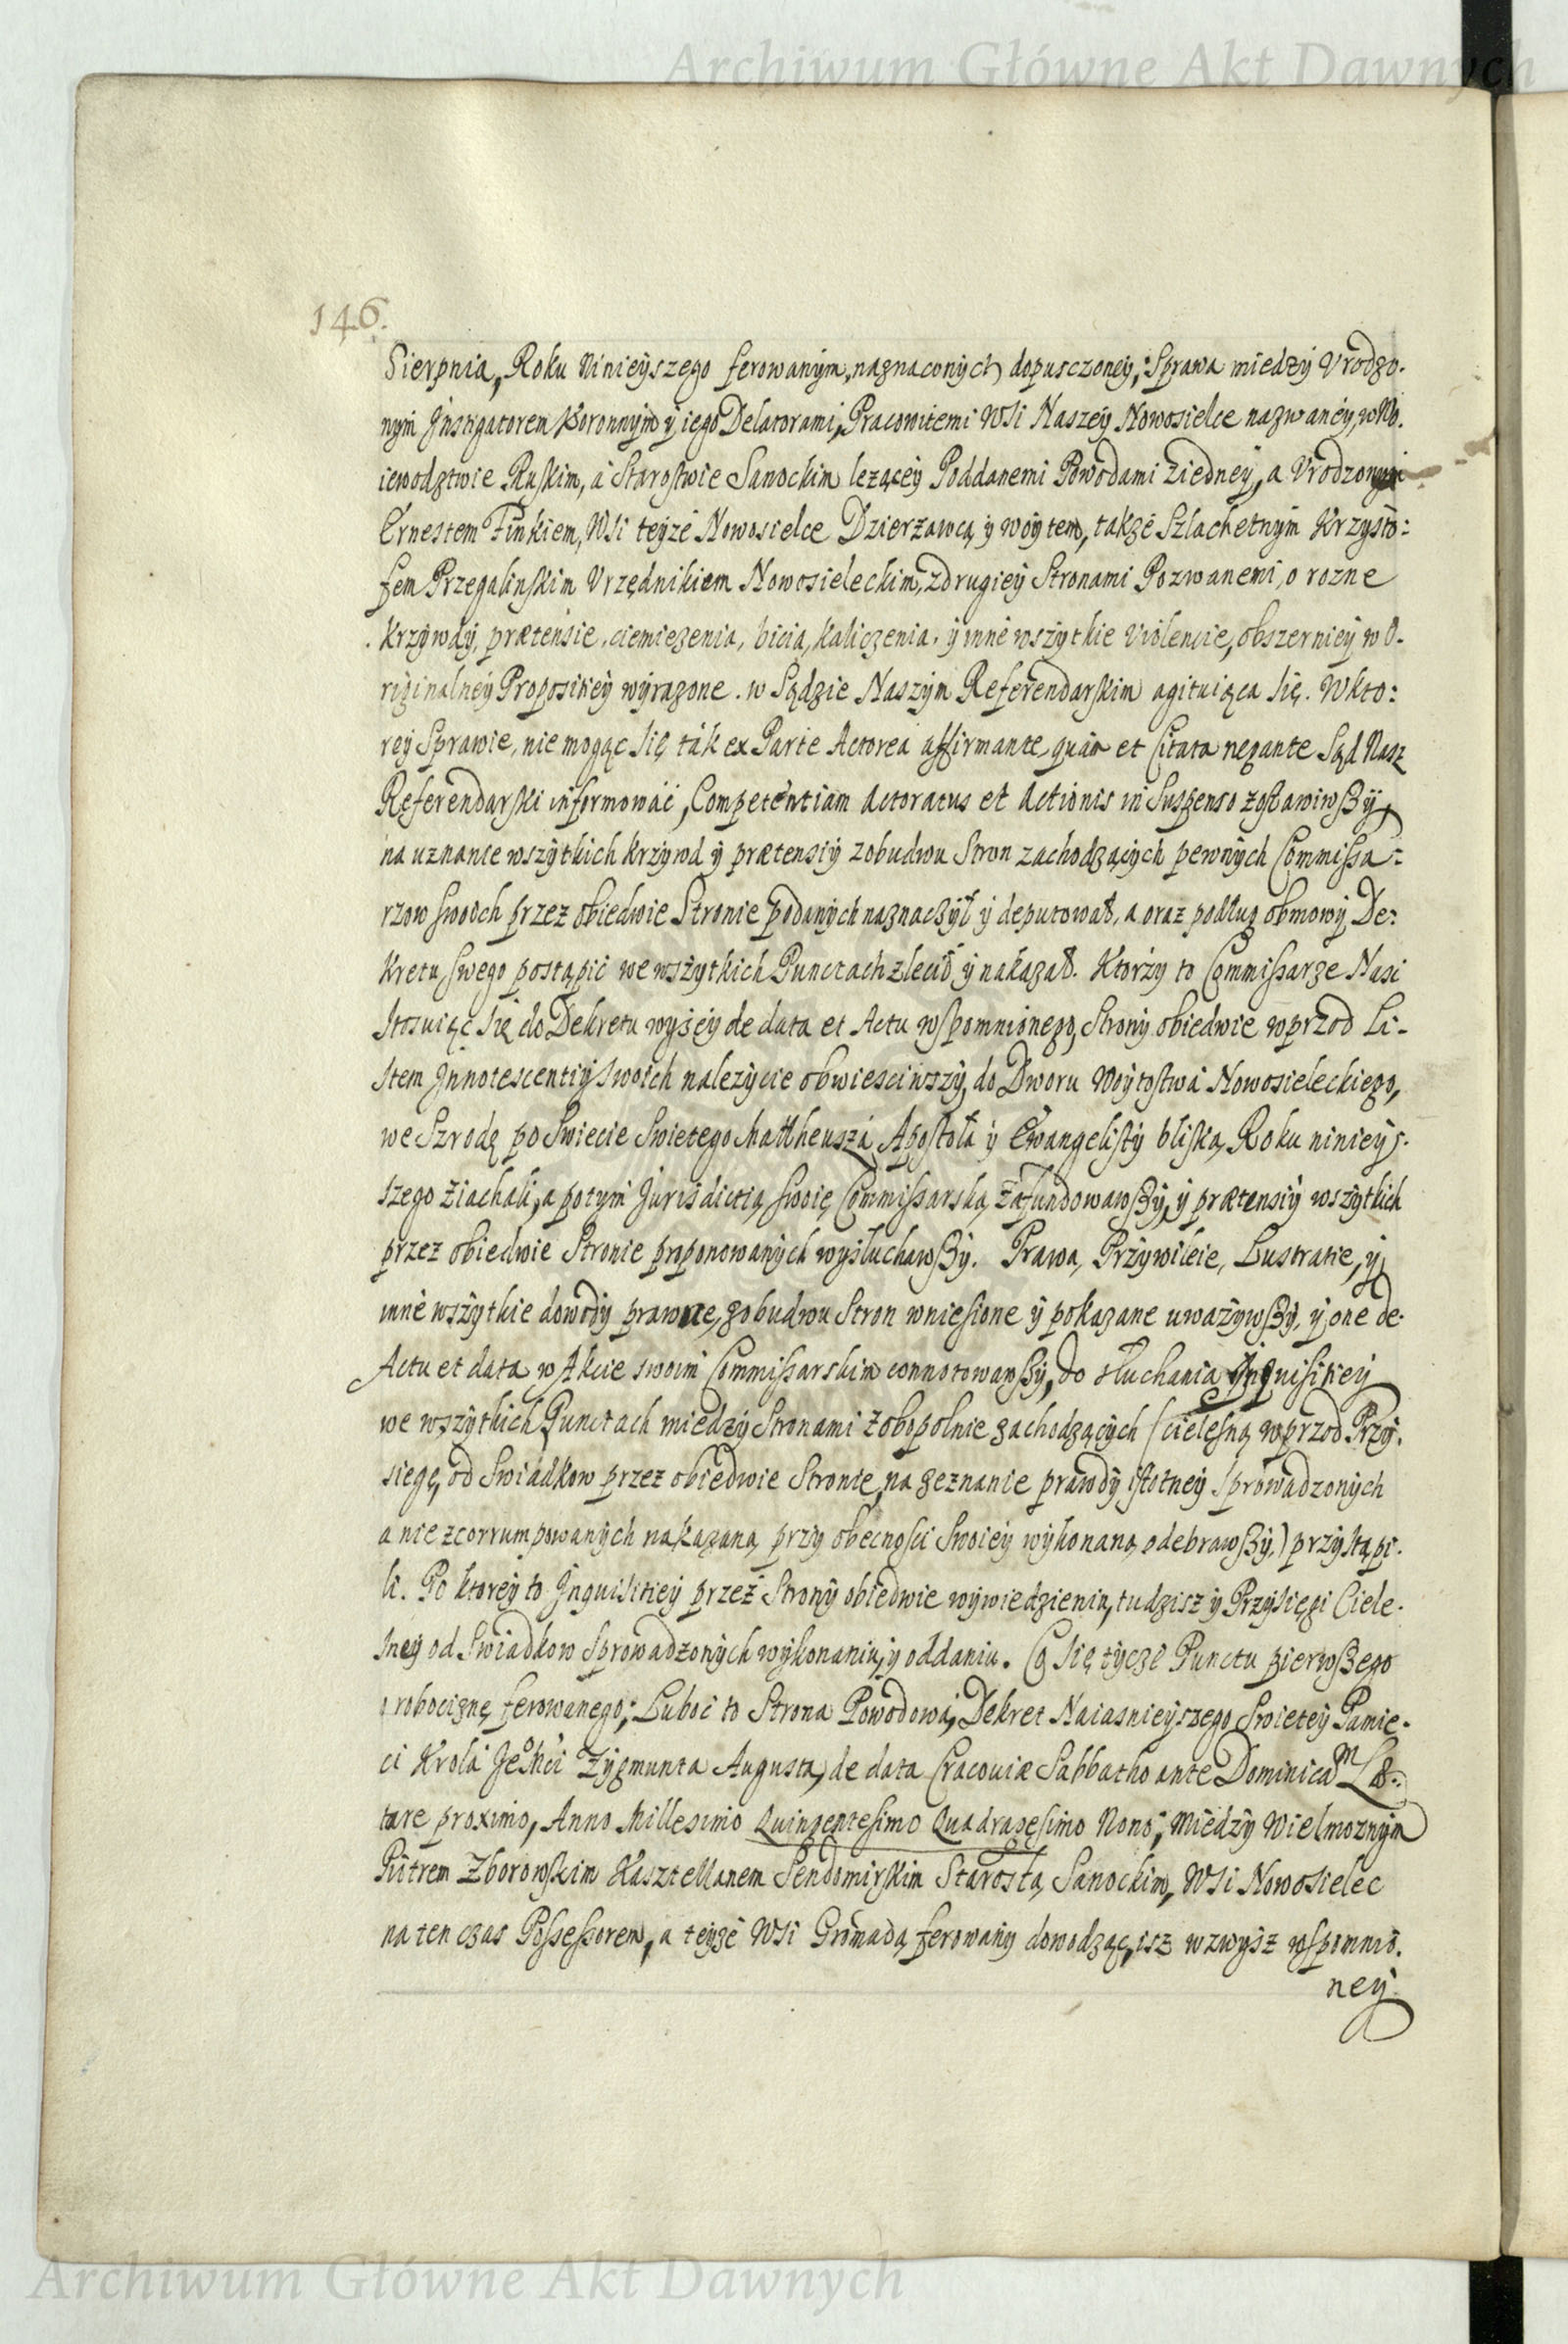 Archiwum Główne Akt Dawnych
146.
Sierpnia, Roku Ninieyszego ferowanym, naznaczonych dopusczoney, Sprawa miedzy Vrodzo-
nym Jnstigatorem Koronnym y iego Delatorami, Pracowitemi WSi Naszey Nowosielce nazwaney, w Wo-
iewodztwie Ruskim, a Starostwie Sanockim lezącey Poddanemi Powodami ziedney, a Vrodzonym
Ernestem Finkiem, WSi teyże Nowosielce Dzierżawcą y woytem, także Szlachetnym Krzysto:
fem Przegalinskim Vrzędnikiem Nowosieleckim, zdrugiey Stronami Pozwanemi, o rozne
krzywdy, prætensie, ciemiezenia, bicia, kaliczenia, y inne wszytkie violencie, obszerniey w o-
riginalney Propositiey wyrazone. w Sądzie Naszym Referendarskim agituiąca się. Wkto:
rey Sprawie, nie mogąc się ták ex Parte Actorea affirmante, quàm et Citata negante Sąd Nasz
Referendarski informowáć, Competentiam Actoratus et Actionis in Suspenso zostawiwszy,
na uznanie wszytkich krzywd y prætensiy zobudwu Stron zachodzących pewnych Commissa-
rzow swoich przez obiedwie Stronie podanych naznaczył y deputował, a oraz podług obmowy De-
kretu swego postąpic we wszytkich Punctach zlecił y nakazał. Ktorzy to Commissarze Nasi
stosuiąc się do Dekretu wyżey de data et Actu wspomnionego, Strony obiedwie wprzod Li-
stem Jnnotescentiy swoich nalezycie obwiesciwszy, do Dworu Woytostwa Nowosieleckiego,
we Szrodę po Swiecie Swietego Mattheusza Apostoła y Ewangelisty bliską, Roku ninieys-
szego ziachali, a potym Jurisdictią swoię Commissarską zafundowawszy, y prætensiy wszytkich
przez obiedwie Stronie proponowanych wysłuchawszy. Prawa, Przywileie, Lustratie, y
inne wszytkie dowody prawne, zobudwu Stron wniesione y pokazane uwazywszy, y one de
Actu et data w Akcie swoim Commissarskim connotowawszy, do słuchania Jnquisitiey
we wszytkich Punctach miedzy Stronami zobopolnie zachodzących (cielesną wprzod Przy-
sięgę, od Swiadkow przez obiedwie Stronie, na zeznanie prawdy istotney sprowadzonych
a nie zcorrumpowanych nakazaną przy obecnosci swoiey wykonaną odebrawszy,) przystąpi-
li. Po ktorey to Jnquisitiey przez Strony obiedwie wywiedzieniu, tudzisz y Przysięgi Ciele-
sney od Swiadkow sprowadzonych wykonaniu, y oddaniu. Co się tycze Punctu pierwszego
o robociznę ferowanego; Luboć to Strona Powodowa, Dekret Naiasnieyszego Swietey Pamię-
ci Krola Jeo Mci Zygmunta Augusta, de data Cracouiæ Sabbatho ante Dominicam Læ-
tare proximo, Anno Millesimo Quingentesimo Quadragesimo Nono, Miedzy Wielmoznym
Piotrem Zborowskim Kasztellanem Sendomirskim Starostą Sanockim, WSi Nowosielec
na ten czas Possessorem, a teyze WSi Gromadą ferowany dowodząc, isz wzwysz wspomnio.
ney
Archiwum Główne Akt Dawnych